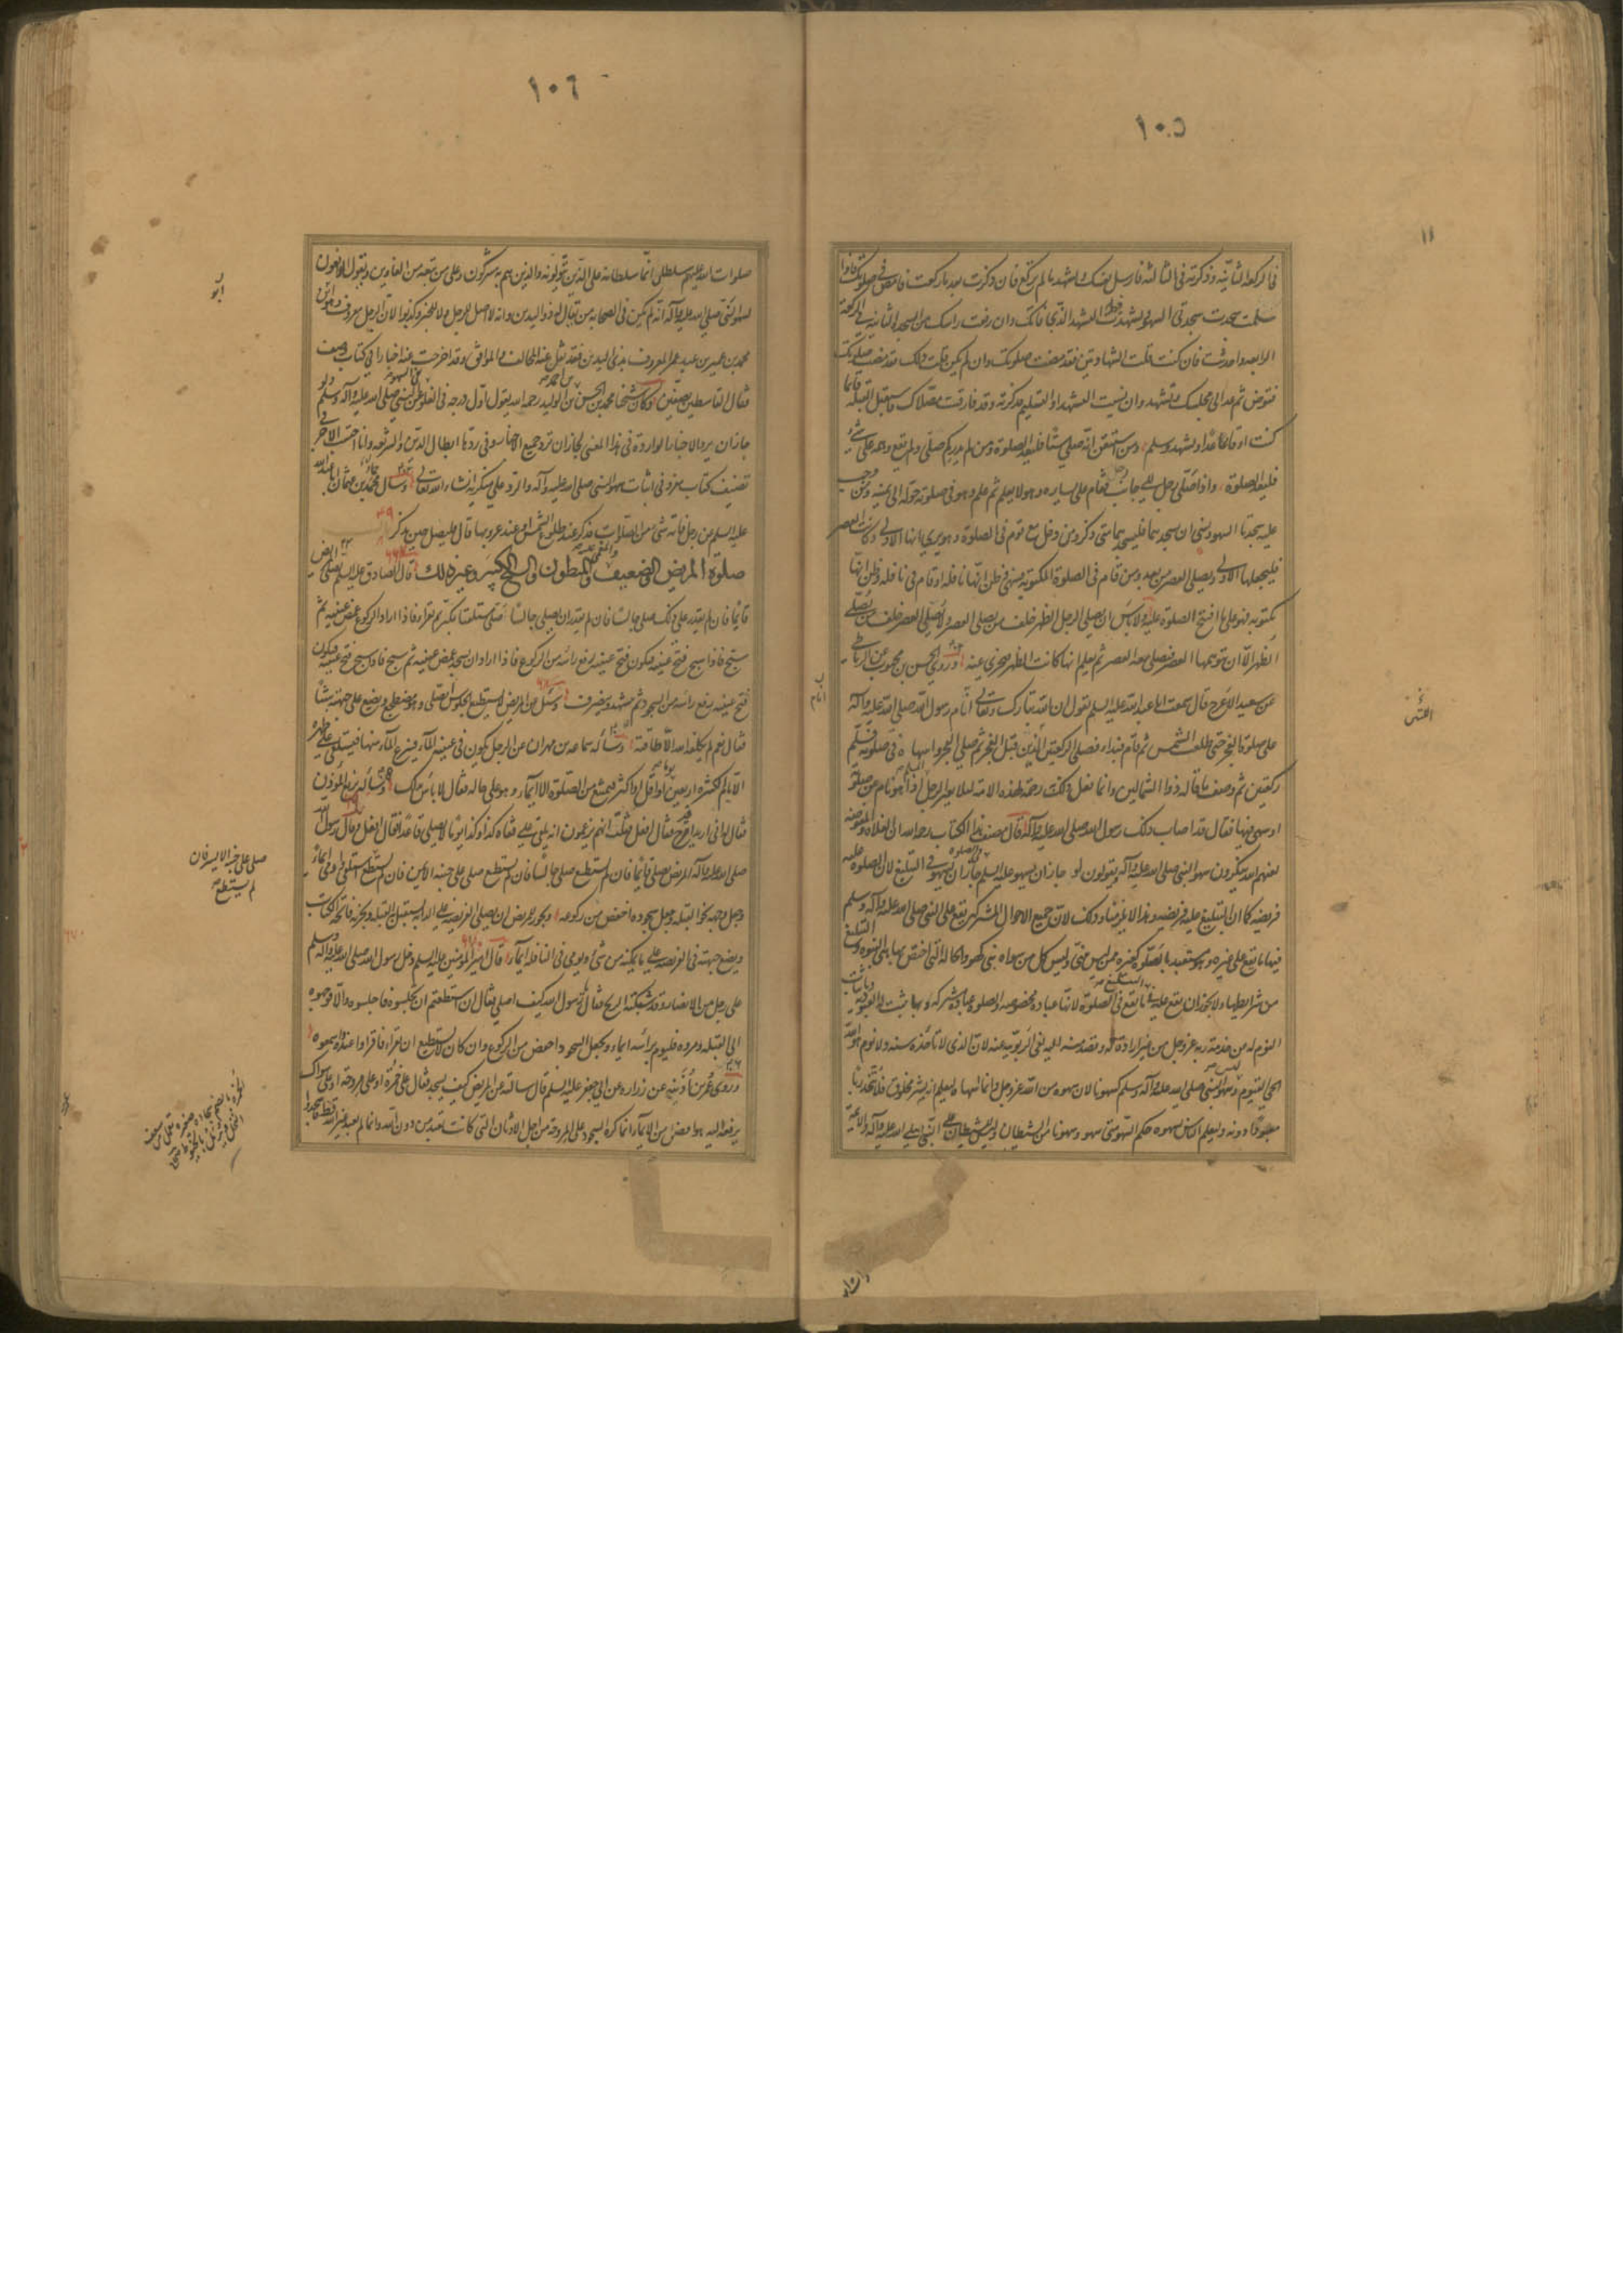 ١٠٥
في الركعة الثانية وذكرته في الثالثة فارسل نفسك وتشهد ما لم تركع فان ذكرت بعد ما ركعت فامض في صلوتك فاذا
سلمت سجدت سجدتي السهو وتشهدت فيهما التشهد الذي فاتك وان رفعت راسك من السجدة الثانية في الركعة
الرابعة واحدثت فان كنت قلت الشهادتين فقد مضت صلوتك وان لم يكن قلت ذلك فقد مضت صلوتك
فتوض ثم عد الى مجلسك وتشهد وان نسيت التشهد او التسليم فذكرته وقد فارقت مصلاك فاستقبل القبلة قائما
كنت او قاعدا وتشهد وسلم ومن استيقن انه صلى ستا فليعد الصلوة ومن لم يدر كم صلى ولم يقع وهمه على شيء
فليعد الصلوة واذا صلى رجل الى جانب رجل فقام على يساره وهو لا يعلم ثم علم وهو في صلوته حوله الى يمينه ومن وجب
عليه سجدتا السهو ونسي ان يسجدهما فليسجدهما متى ذكر ومن دخل مع قوم في الصلوة وهو يرى انها الاولى وكانت العصر
فليجعلها الاولى ويصلي العصر من بعد ومن قام في الصلوة المكتوبة فسهى فظن انها نافلة او قام في نافلة وظن انها
مكتوبة فهو على ما افتتح الصلوة عليه ولا باس ان يصلي الرجل الظهر خلف من يصلي العصر ولا يصلي العصر خلف من يصلي
الظهر الا ان يتوهمها العصر فيصلي معه العصر ثم يعلم انها كانت الظهر فيجزي عنه وروى الحسن بن محبوب عن الرباطي
عن سعيد الاعرج قال سمعت ابا عبد الله عليه السلم يقول ان الله تبارك وتعالى انام رسول الله صلى الله عليه وآله
على صلوة الفجر حتى طلعت الشمس ثم قام فبدا فصلى الركعتين اللتين قبل الفجر ثم صلى الفجر واسهاه في صلوته فسلم
ركعتين ثم وصف ما قاله ذو الشمالين وانما فعل ذلك رحمة لهذه الامة لئلا يعير الرجل المسلم اذا هو نام عن صلوته
او سهى فيها فقال قد اصاب ذلك رسول الله صلى الله عليه وآله قال مصنف هذا الكتاب رحمه الله ان الغلاة والمفوضة
لعنهم الله ينكرون سهو النبي صلى الله عليه وآله ويقولون لو جاز ان يسهو عليه السلم في الصلوة جاز ان يسهو في التبليغ لان الصلوة عليه
فريضة كما ان التبليغ عليه فريضة وهذا لا يلزمنا وذلك لان جميع الاحوال المشتركة يقع على النبي صلى الله عليه وآله وسلم
فيها ما يقع على غيره وهو متعبد بالصلوة كغيره ممن ليس بنبي وليس كل من سواه بنبي كهو والحالة التي اختص بها هي النبوة والتبليغ
من شرايطها ولا يجوز ان يقع عليه في التبليغ ما يقع في الصلوة لانها عبادة مخصوصة والصلوة عبادة مشتركة وبها تثبت له العبودية وباثبات
النوم له من خدمة ربه عز وجل من غير ارادة له وقصد منه اليه نفي الربوبية عنه لان الذي لا تاخذه سنة ولا نوم هو الله
الحي القيوم وليس سهو النبي صلى الله عليه وآله وسلم كسهونا لان سهوه من الله عز وجل وانما اسهاه ليعلم انه بشر مخلوق فلا يتخذ ربا
معبودا دونه وليعلم الناس بسهوه حكم السهو متى سهو وسهونا من الشيطان وليس للشيطان على النبي صلى الله عليه وآله والائمة
١٠٦
صلوات الله عليهم سلطان انما سلطانه على الذين يتولونه والذين هم به مشركون وعلى من تبعه من الغاوين ويقول الدافعون
لسهو النبي صلى الله عليه وآله انه لم يكن في الصحابة من يقال له ذو اليدين وانه لا اصل للرجل ولا للخبر وكذبوا لان الرجل معروف وهو ابو
محمد بن عمير بن عبد عمرو المعروف بذي اليدين فقد نقل عنه المخالف والموافق وقد اخرجت عنه اخبارا في كتاب وصف
قتال القاسطين بصفين وكان شيخنا محمد بن الحسن بن احمد بن الوليد رحمه الله يقول اول درجة في الغلو نفي السهو عن النبي صلى الله عليه وآله وسلم ولو
جاز ان يرد الاخبار الواردة في هذا المعنى لجاز ان نرد جميع الاخبار وفي ردها ابطال الدين والشريعة وانا احتسب الاجر في
تصنيف كتاب مفرد في اثبات سهو النبي صلى الله عليه وآله والرد على منكريه انشاء الله تعالى وسال حماد بن عثمان ابا عبد الله
عليه السلم عن رجل فاته شيء من الصلوات فذكر عند طلوع الشمس او عند غروبها قال فليصل حين يذكر
صلوة المريض والضعيف والمغمى عليه والمبطون والشيخ الكبير وغير ذلك قال الصادق عليه السلم يصلي المريض
قائما فان لم يقدر على ذلك صلى جالسا فان لم يقدر ان يصلي جالسا صلى مستلقيا يكبر ثم يقرا فاذا اراد الركوع غمض عينيه ثم
سبح فاذا سبح فتح عينيه فيكون فتح عينيه رفع راسه من الركوع فاذا اراد ان يسجد غمض عينيه ثم سبح فاذا سبح فتح عينيه فيكون
فتح عينيه رفع راسه من السجود ثم يتشهد وينصرف وسئل عن المريض لا يستطيع الجلوس ايصلي وهو مضطجع ويضع على جبهته شيئا
فقال نعم لم يكلفه الله الا طاقته وساله سماعة بن مهران عن الرجل يكون في عينيه الماء فينزع الماء منها فيستلقي على ظهره
الايام الكثيرة اربعين يوما او اقل او اكثر فيمتنع من الصلوة الا ايماء وهو على حاله فقال لا باس بذلك وساله بزيع المؤذن
فقال له اني اريد ان اقدح عيني فقال افعل فقلت انهم يزعمون انه يلقى على قفاه كذا وكذا يوما لا يصلي قاعدا فقال افعل وقال رسول الله
صلى الله عليه وآله المريض يصلي قائما فان لم يستطع صلى جالسا فان لم يستطع صلى على جنبه الايمن فان لم يستطع استلقى واومى ايماء
وجعل وجهه نحو القبلة وجعل سجوده اخفض من ركوعه ويجوز للمريض ان يصلي الفريضة على الدابة يستقبل القبلة ويجزيه فاتحة الكتاب
ويضع جبهته في الفريضة على ما يمكنه من شيء ويومي في النافلة ايماء وقال امير المؤمنين عليه السلم دخل رسول الله صلى الله عليه وآله وسلم
على رجل من الانصار وقد شبكته الريح فقال يا رسول الله كيف اصلي فقال ان استطعتم ان تجلسوه فاجلسوه والا فوجهوه
الى القبلة ومروه فليوم براسه ايماء ويجعل السجود اخفض من الركوع وان كان لا يستطيع ان يقرا فاقراوا عنده واسمعوه
وروى عمر بن اذينة عن زرارة عن ابي جعفر عليه السلم قال سالته عن المريض كيف يسجد فقال على خمرة او على مروحة او على سواك
يرفعه اليه هو افضل من الايماء انما كره السجود على المروحة من اجل الاوثان التي كانت تعبد من دون الله وانا لم نعبد غير الله قط فاسجدوا
صلى على جنبه الايسر فان
لم يستطع